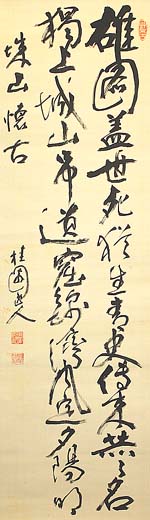 雄図盖世死猶生青史伝来赫々名
獨上城山弔道窟錦湾風定夕陽明
城山懐古
桂園逸人